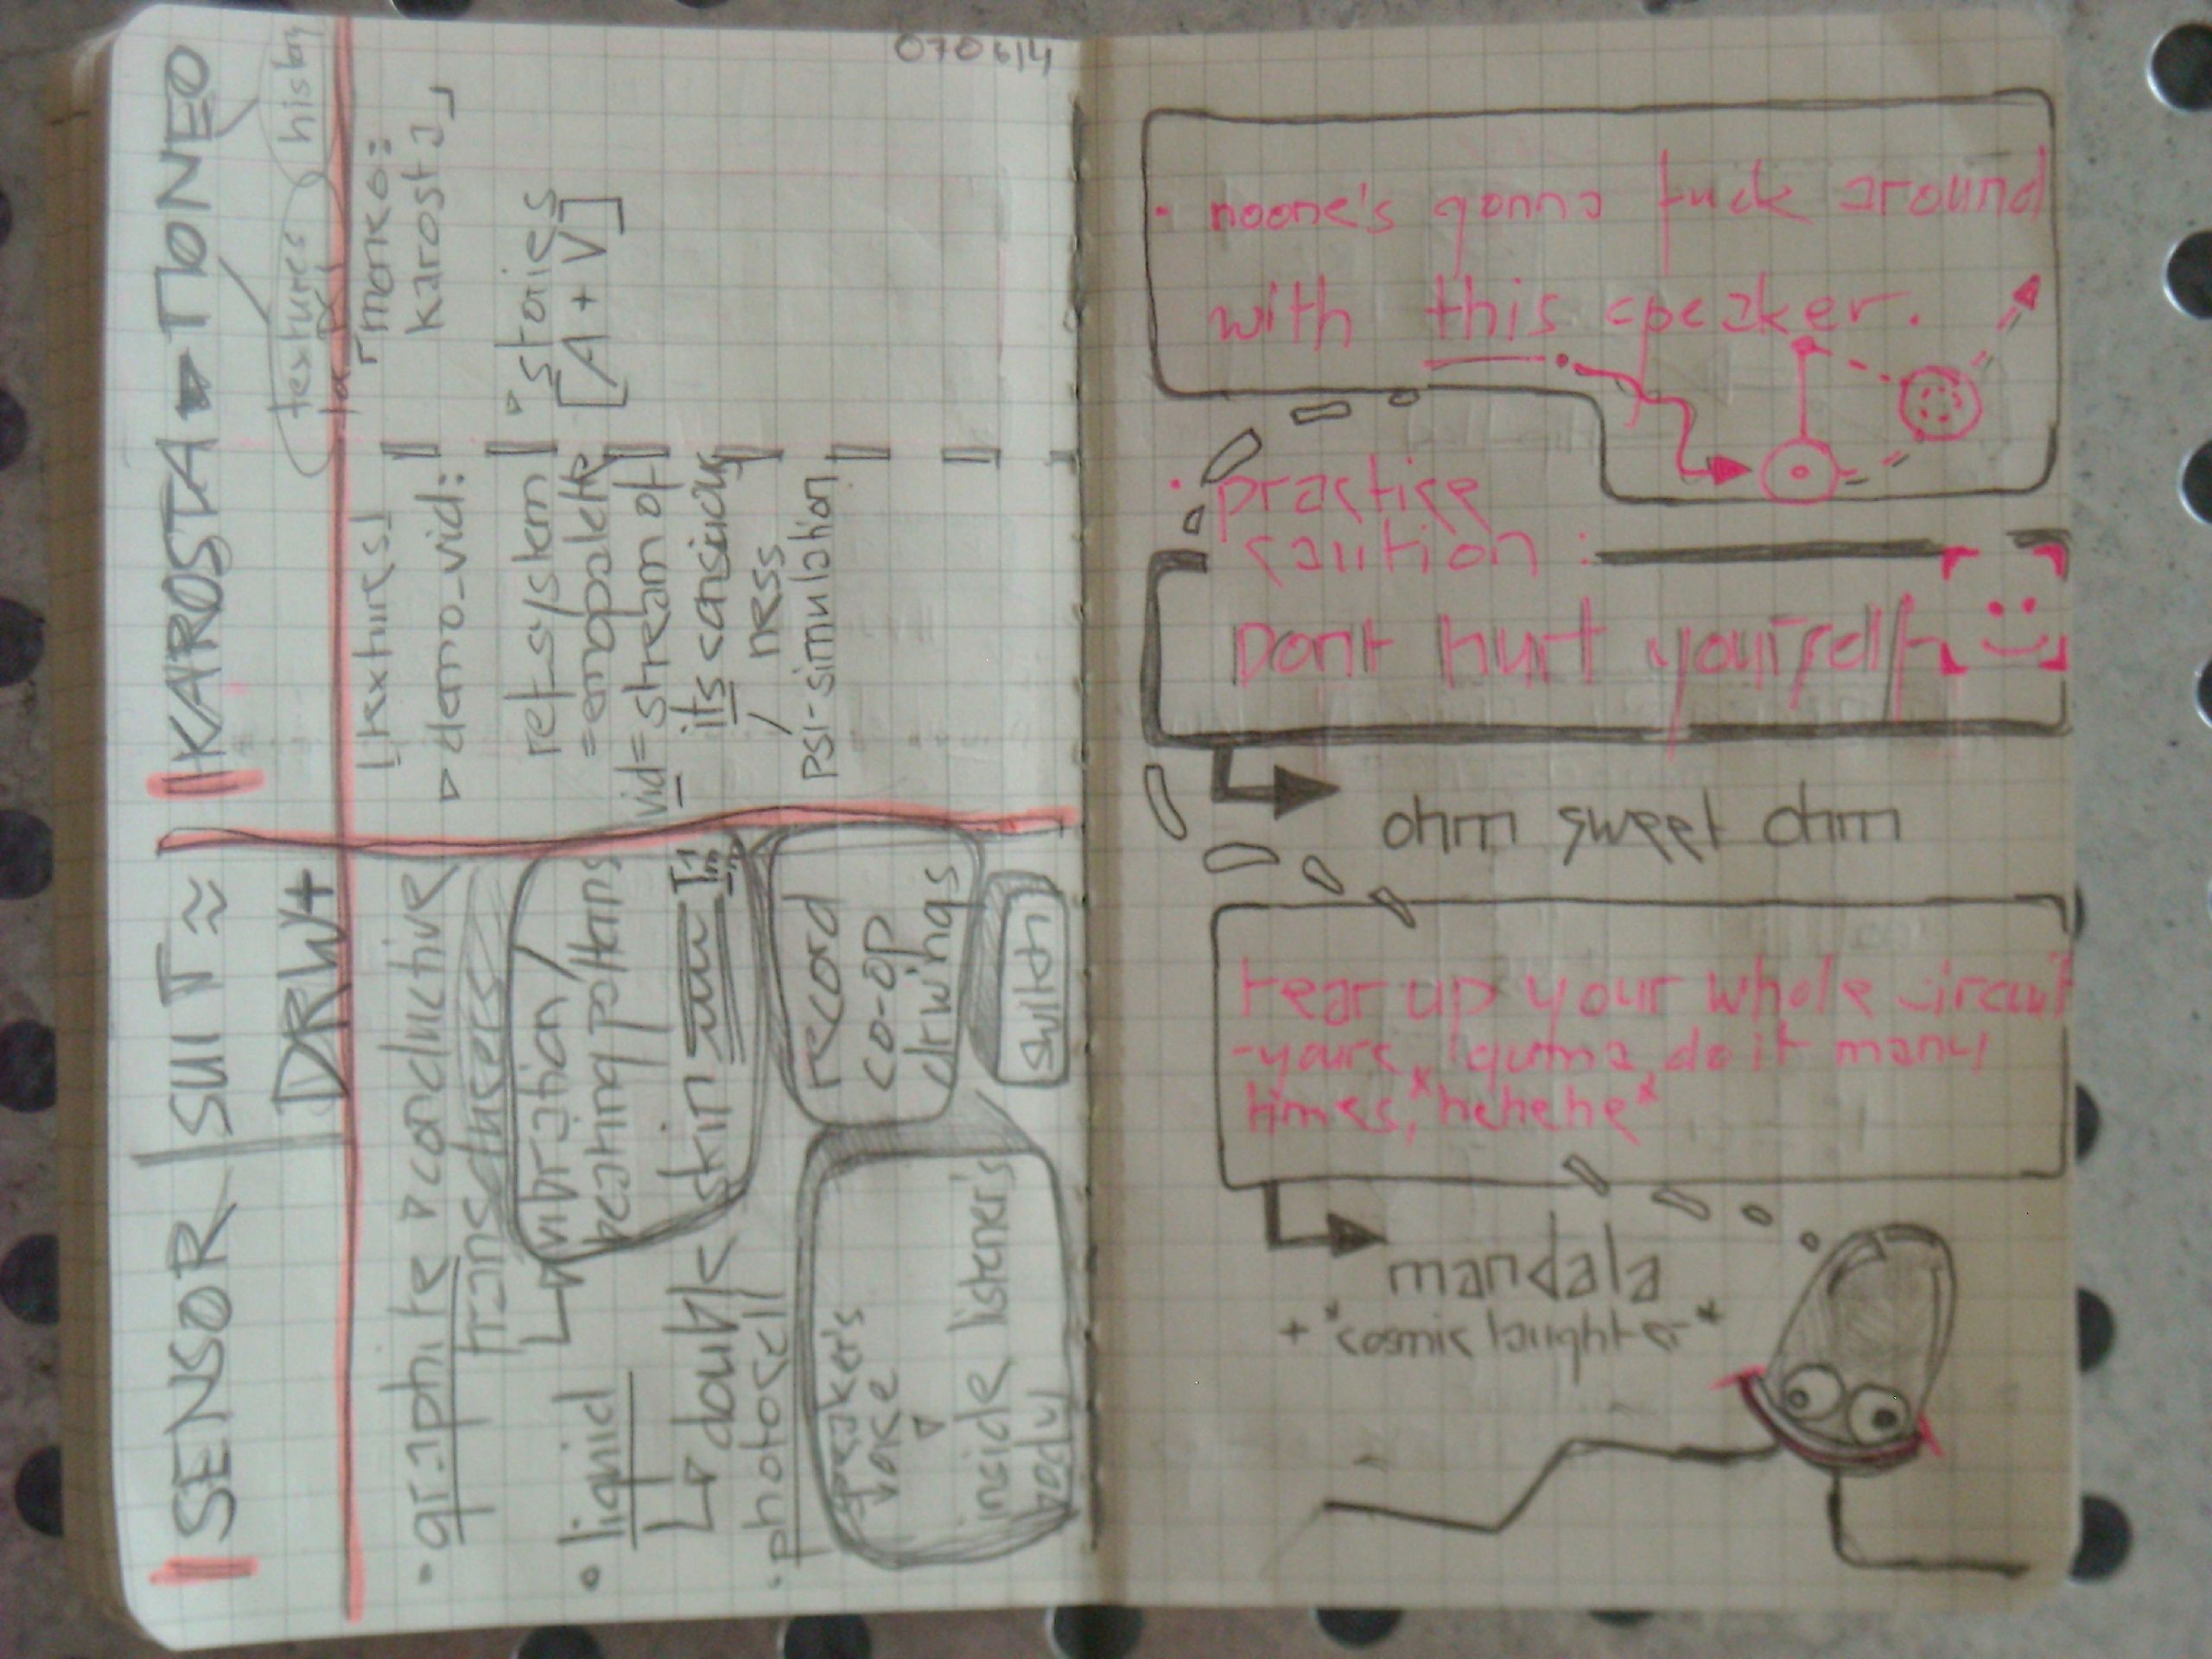 070614
SENSOR SUIT ≈
DRW+
• graphite ▷ conductive
transducers
vibration /
beating patterns
• liquid
double skin
• photocell
record
co-op
drwings
switch
speaker's
voice
▷
inside listener's
body
KAROSTA ▶ MONEO
textures
history
[textures]
▷ demo_vid:
ref_system
=emopalette
vid= stream of
its conscious
ness
/
psi-simulation
「moneo:
karosta」
▷ stories
[A + V]
• noone's gonna fuck around
with this speaker.
• practise
caution :
Dont hurt yourself
ohm sweet ohm
tear up your whole circuit
-yours, I gonna do it many
times, *hehehe*
mandala
+ *cosmic laughter*